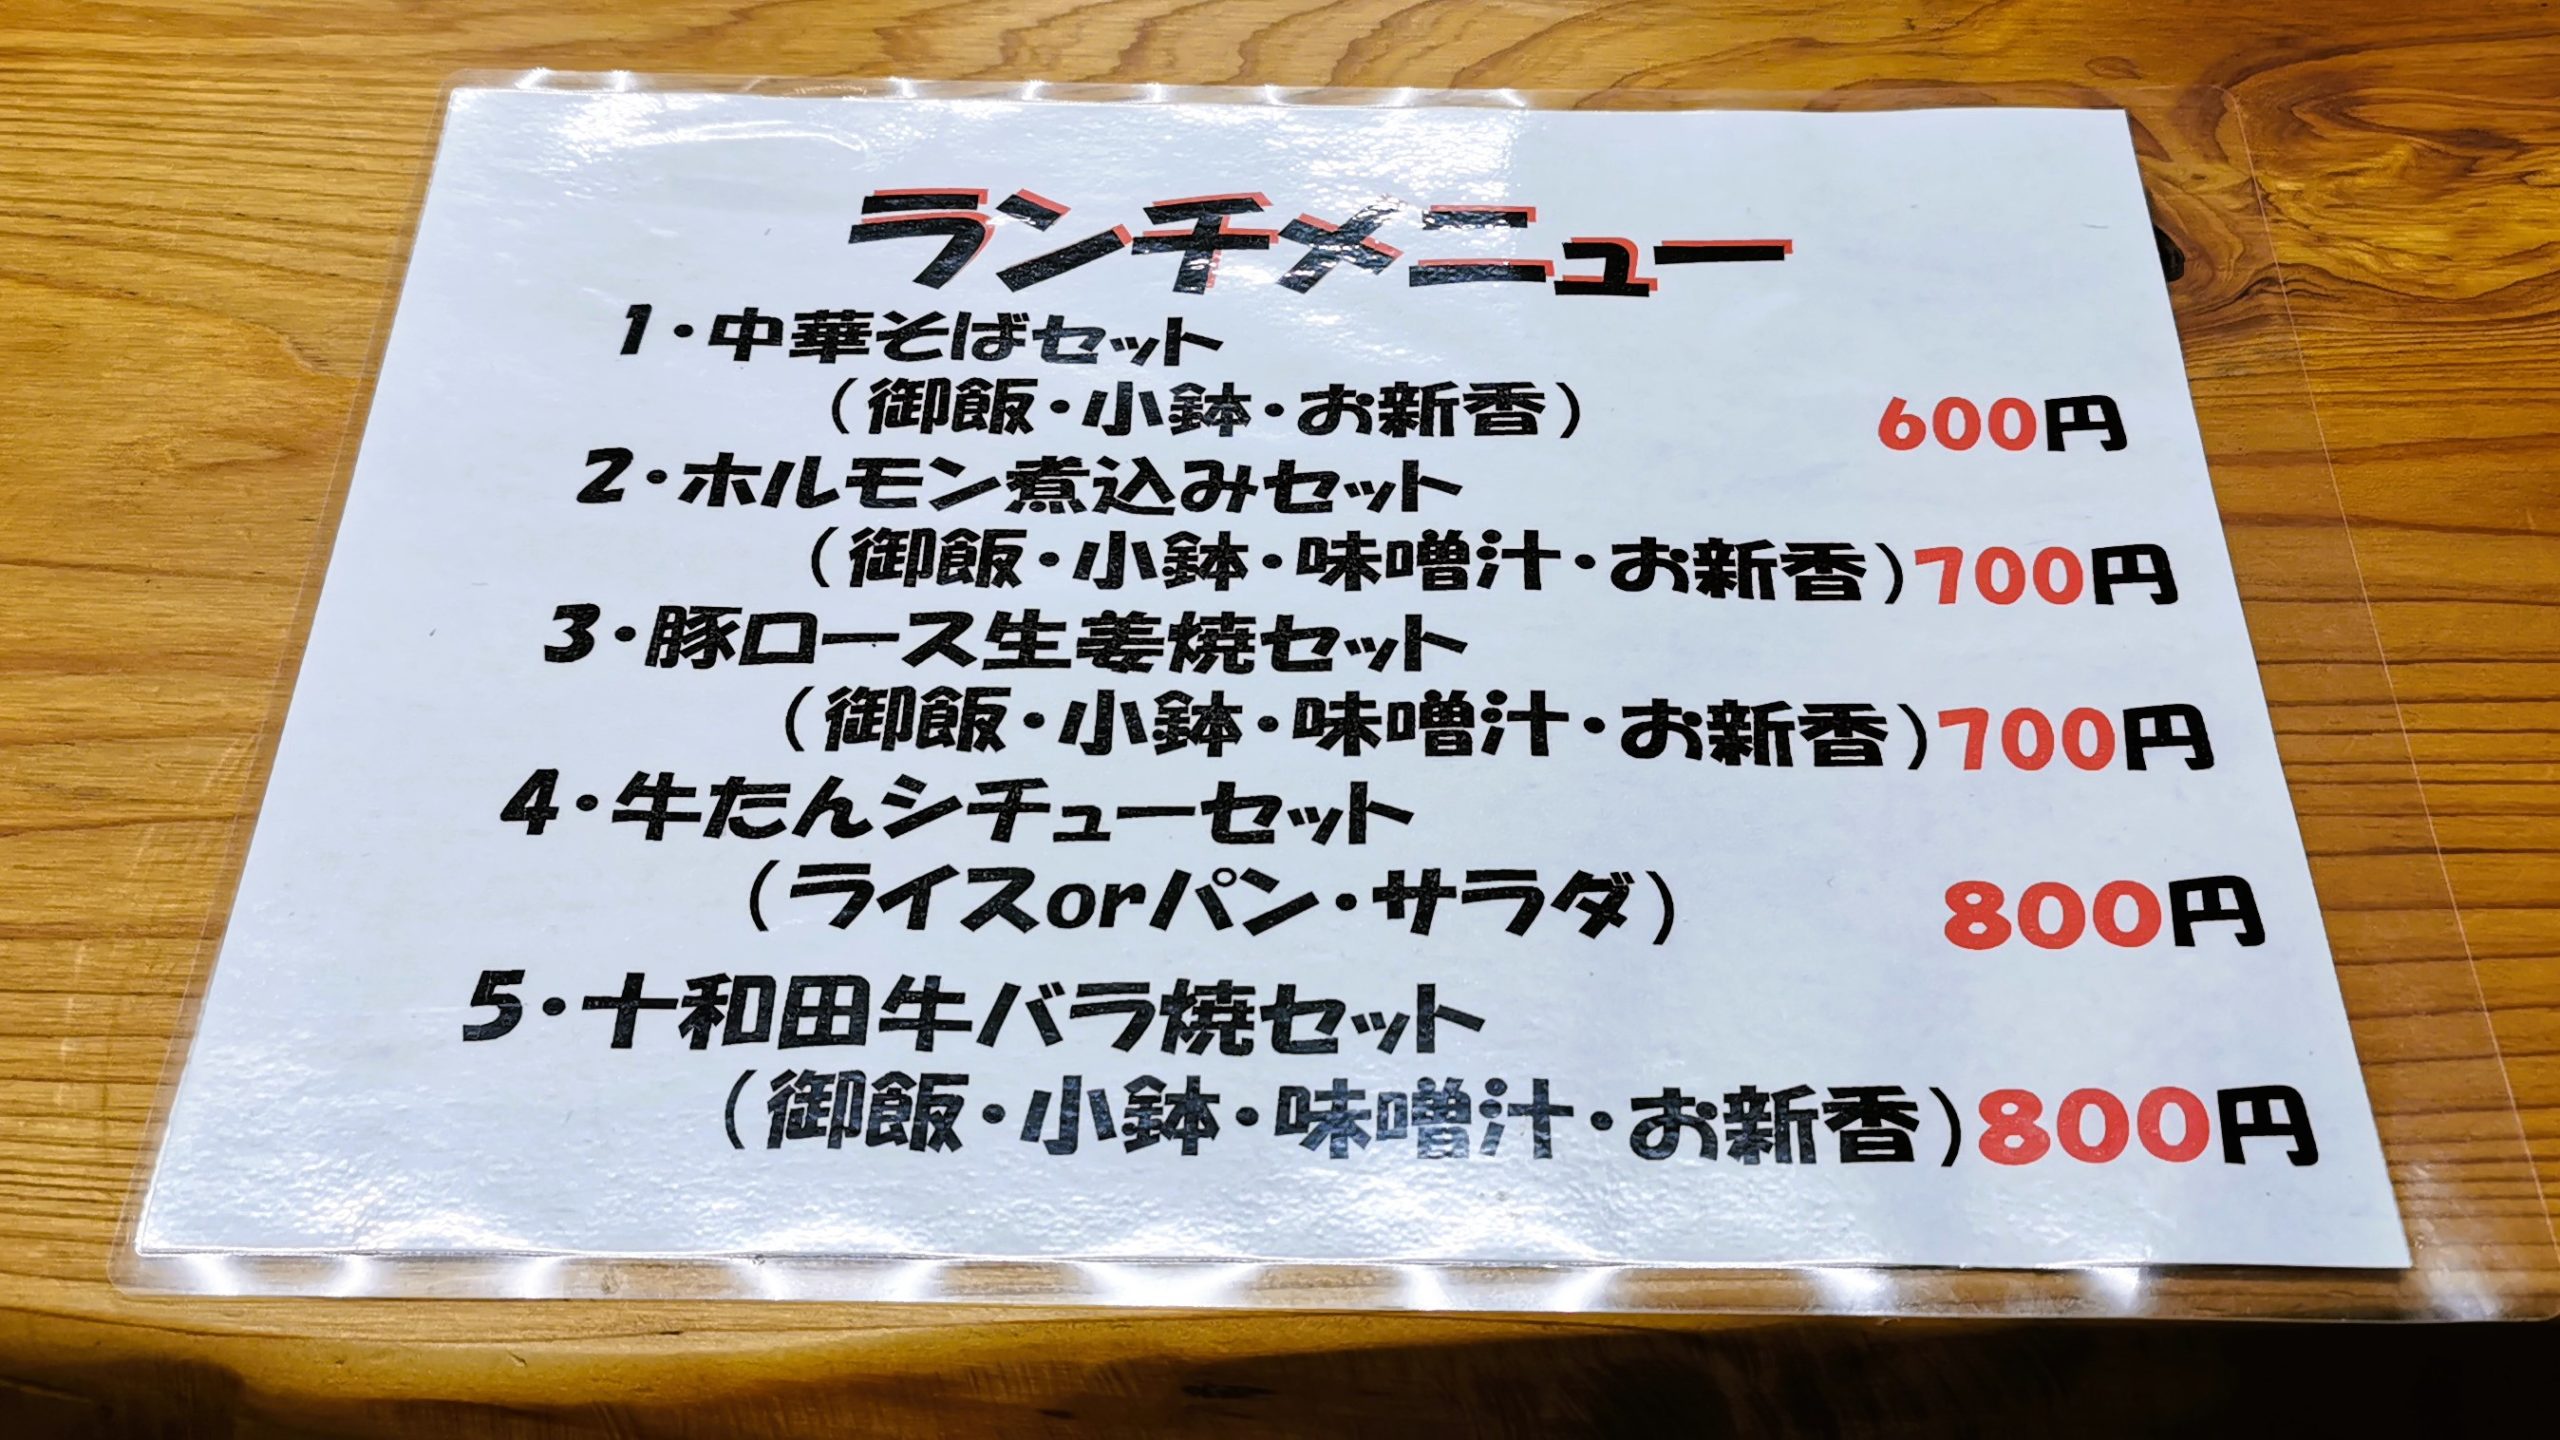 ランチメニュー
1・中華そばセット
（御飯・小鉢・お新香） 600円
2・ホルモン煮込みセット
（御飯・小鉢・味噌汁・お新香）700円
3・豚ロース生姜焼セット
（御飯・小鉢・味噌汁・お新香）700円
4・牛たんシチューセット
（ライスorパン・サラダ） 800円
5・十和田牛バラ焼セット
（御飯・小鉢・味噌汁・お新香）800円